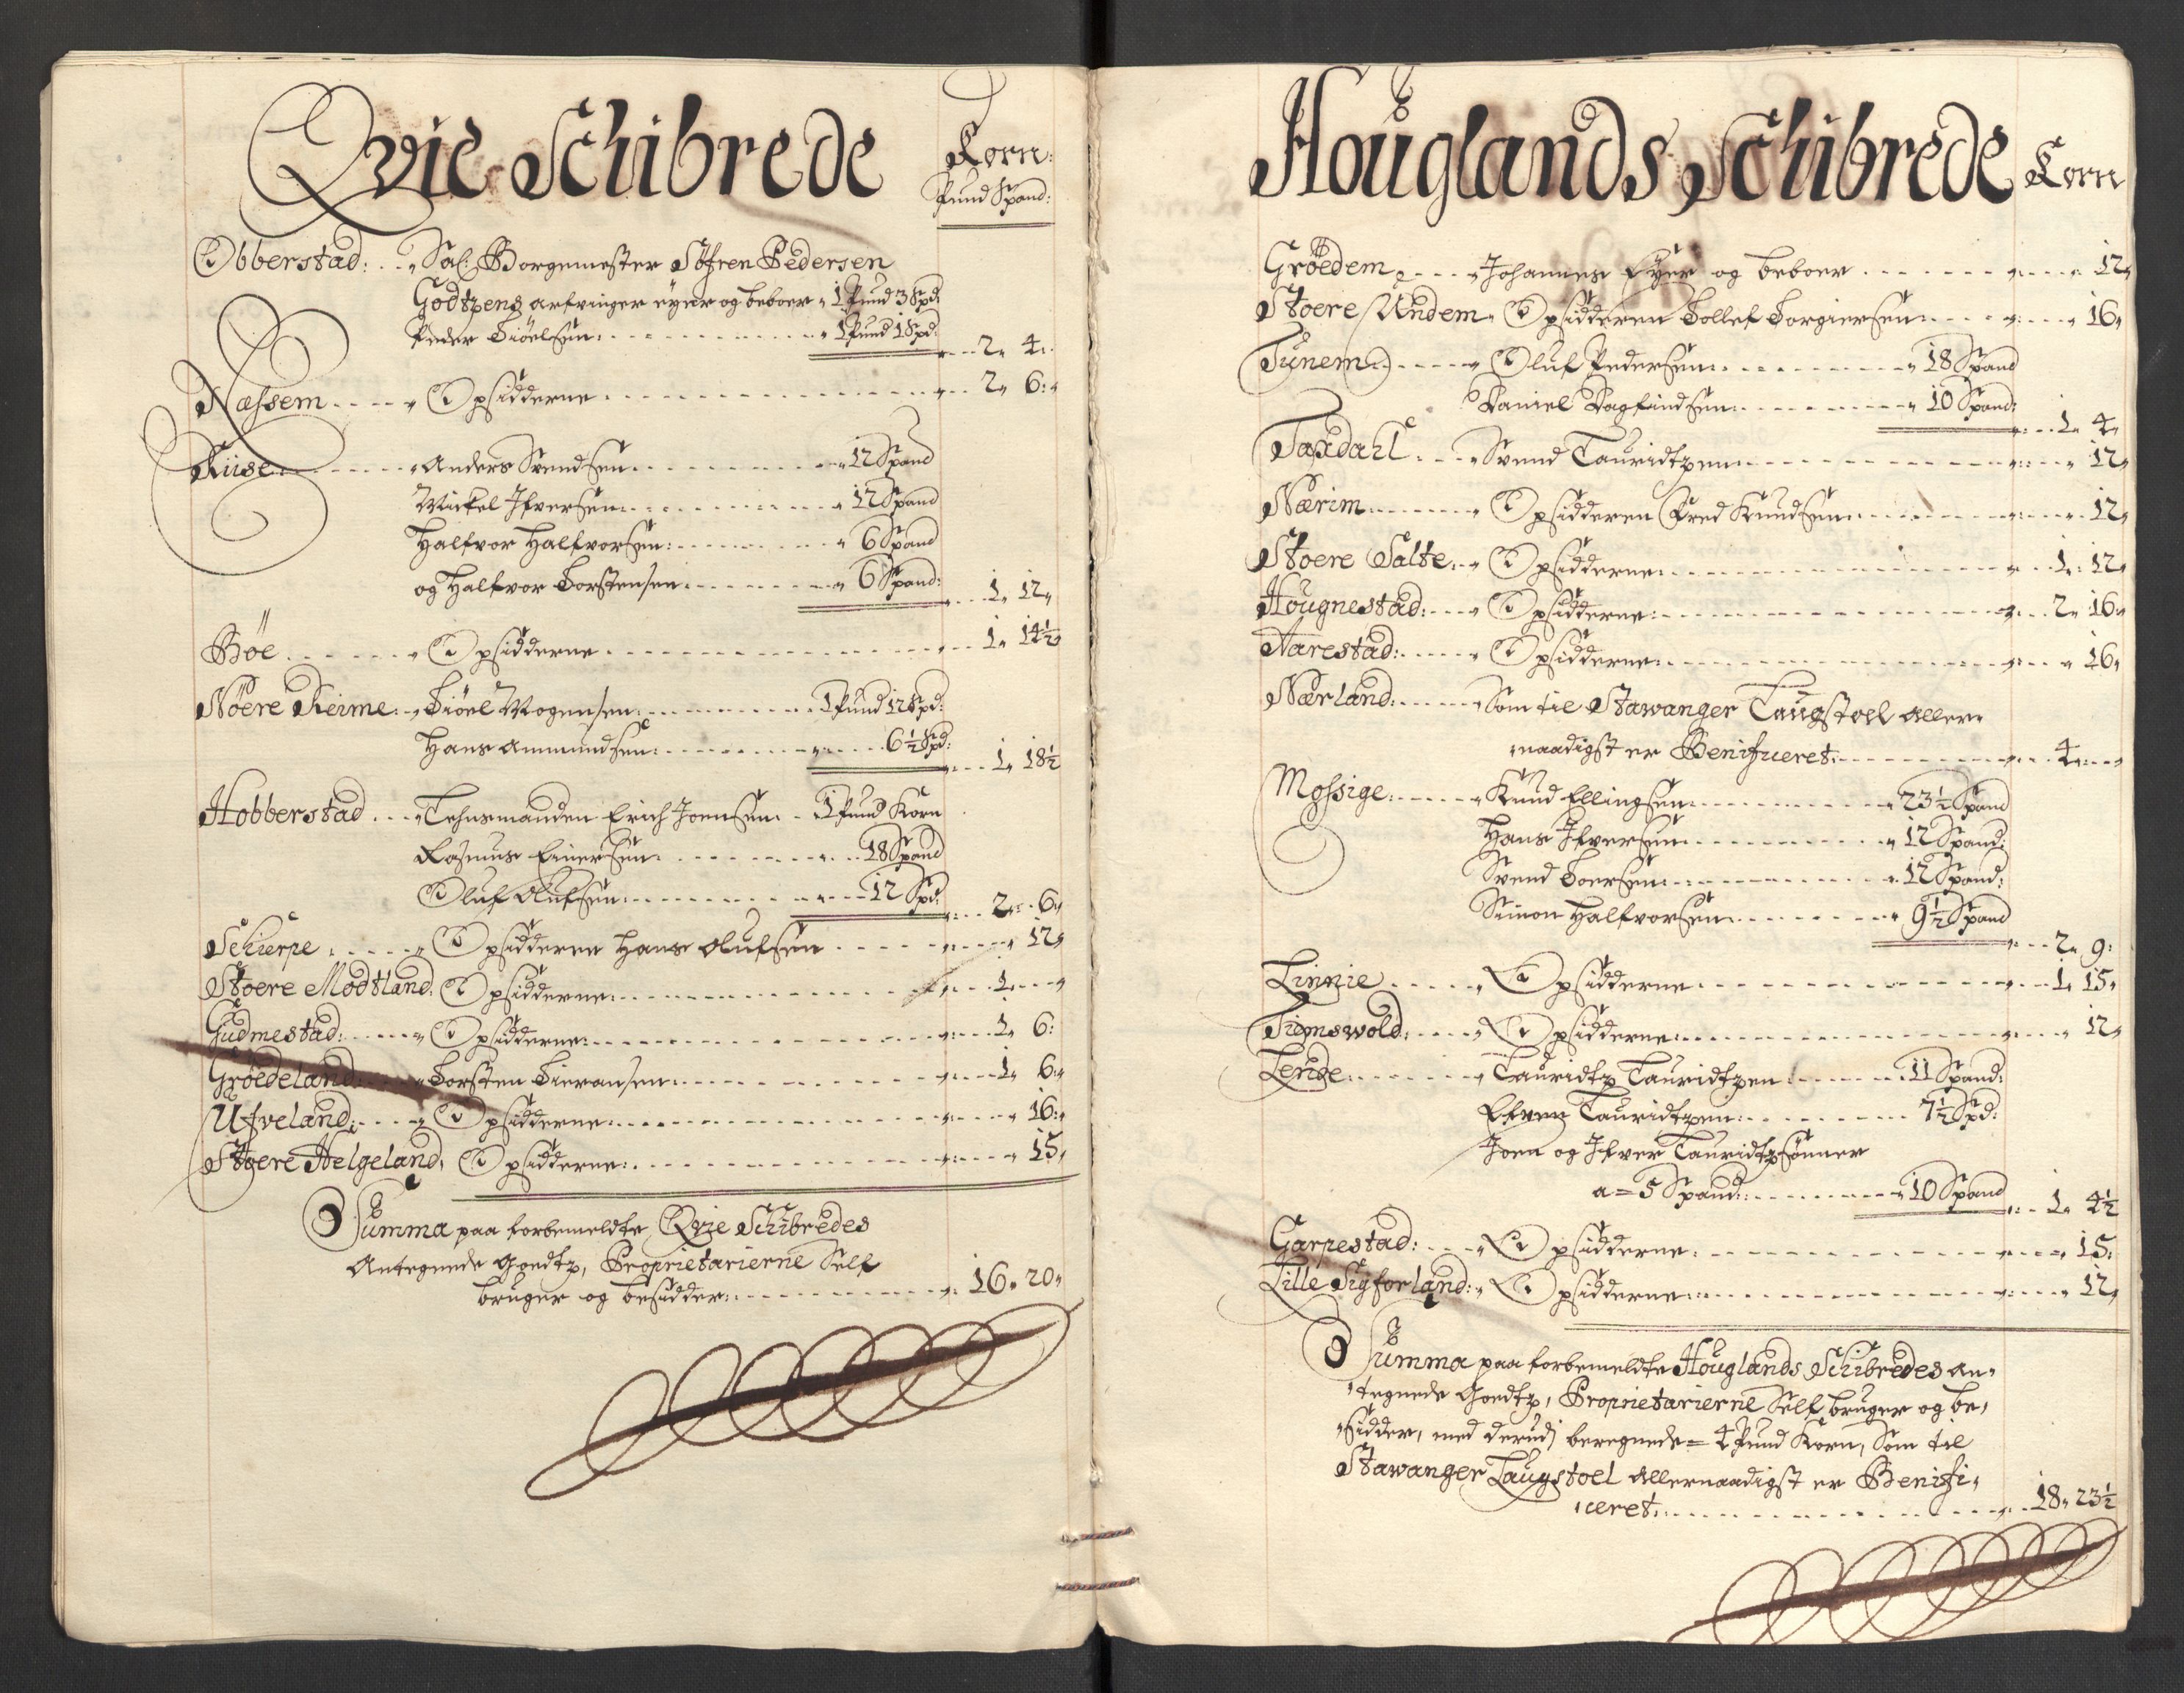 Qvie Schibrede
Korn:
Pund Spand:
Obberstad: Sal: Borgemester Söfren Pedersen
Godtzens arfvinger eyer og beboer 1 Pund 3 Spd:
Peder Siöelsen: 1 Pund 1 Spd: 2 4
Næssem Opsidderne 2 6
Riise Anders Svendsen 12 Spand
Mickel Ifversen 12 Spand
Halfvor Halfvorsen: 6 Spand
og Halfvor Torstensen: 6 Spand: 1 12
Böe Opsidderne 1 14½
Nöere Reime: Siöel Mogensen: 1 Pund 12 Spd:
Hans Ammundsen: 6½ Spd: 1 18½
Hobberstad Lehnsmanden Erich Joensen: 1 Pund Korn
Rasmus Einersen: 18 Spand
Oluf Olufsen: 12 Spd: 2 6
Schierpe: Opsidderen Hans Olufsen 12
Stoere Modtland: Opsidderne: 1
Gudmestad: Opsidderne: 1 6
Gröedeland: Torsten 1 6
Ufveland: Opsidderne: 16
Stoere Helgeland, Opsidderne: 15
Summa paa forbemeldte Qvie Schibredes
Antegnede Goedtz, Proprietarierne Self
bruger og besidder: 16 20
Houglands Schibrede Korn
Gröedem Johannes Eyer og beboer 12
Stoere Undem Opsidderen Tollef Torgiersen 16
Tunem: Oluf Pedersen: 18 Spand
Daniel Dagfindsen: 10 Spand: 1 4
Taxdahl: Svend Lauridtzen: 12
Nærim Opsidderen Pred Knudsen 12
Stoere Salte: Opsidderne: 1 12
Hougnestad: Opsidderne: 2 16
Aarestad: Opsidderne: 16
Nærland: Som til Stawanger Laugstoel Aller-
naadigst er Benificeret: 4
Mossige: Knud Ellingsen: 23½ Spand
Hans Ifversen 12 Spand:
Svend Toersen: 12 Spand:
Simon Halfvorsen: 9½ Spand
2 9
Linnie Opsidderne 1 15
Tiemswold: Opsidderne: 12
Lende: Lauridtz Lauridtzen: 11 Spand:
Efven Lauridtzen: 7½ Spd:
Joen og Ifver Lauridtzsönner
a = 5 Spand: 10 Spand 1 4½
Garpestad: Opsidderne: 15
Lille Sigforland: Opsidderne: 12
Summa paa forbemeldte Houglands Schibredes an-
tegnede Goedtz, Proprietarierne Self bruger og be-
sidder, med derudj beregnede = 4 Pund Korn, Som til
Stawanger Laugstoel Allernaadigst er Benifi-
ceret: 18 23½